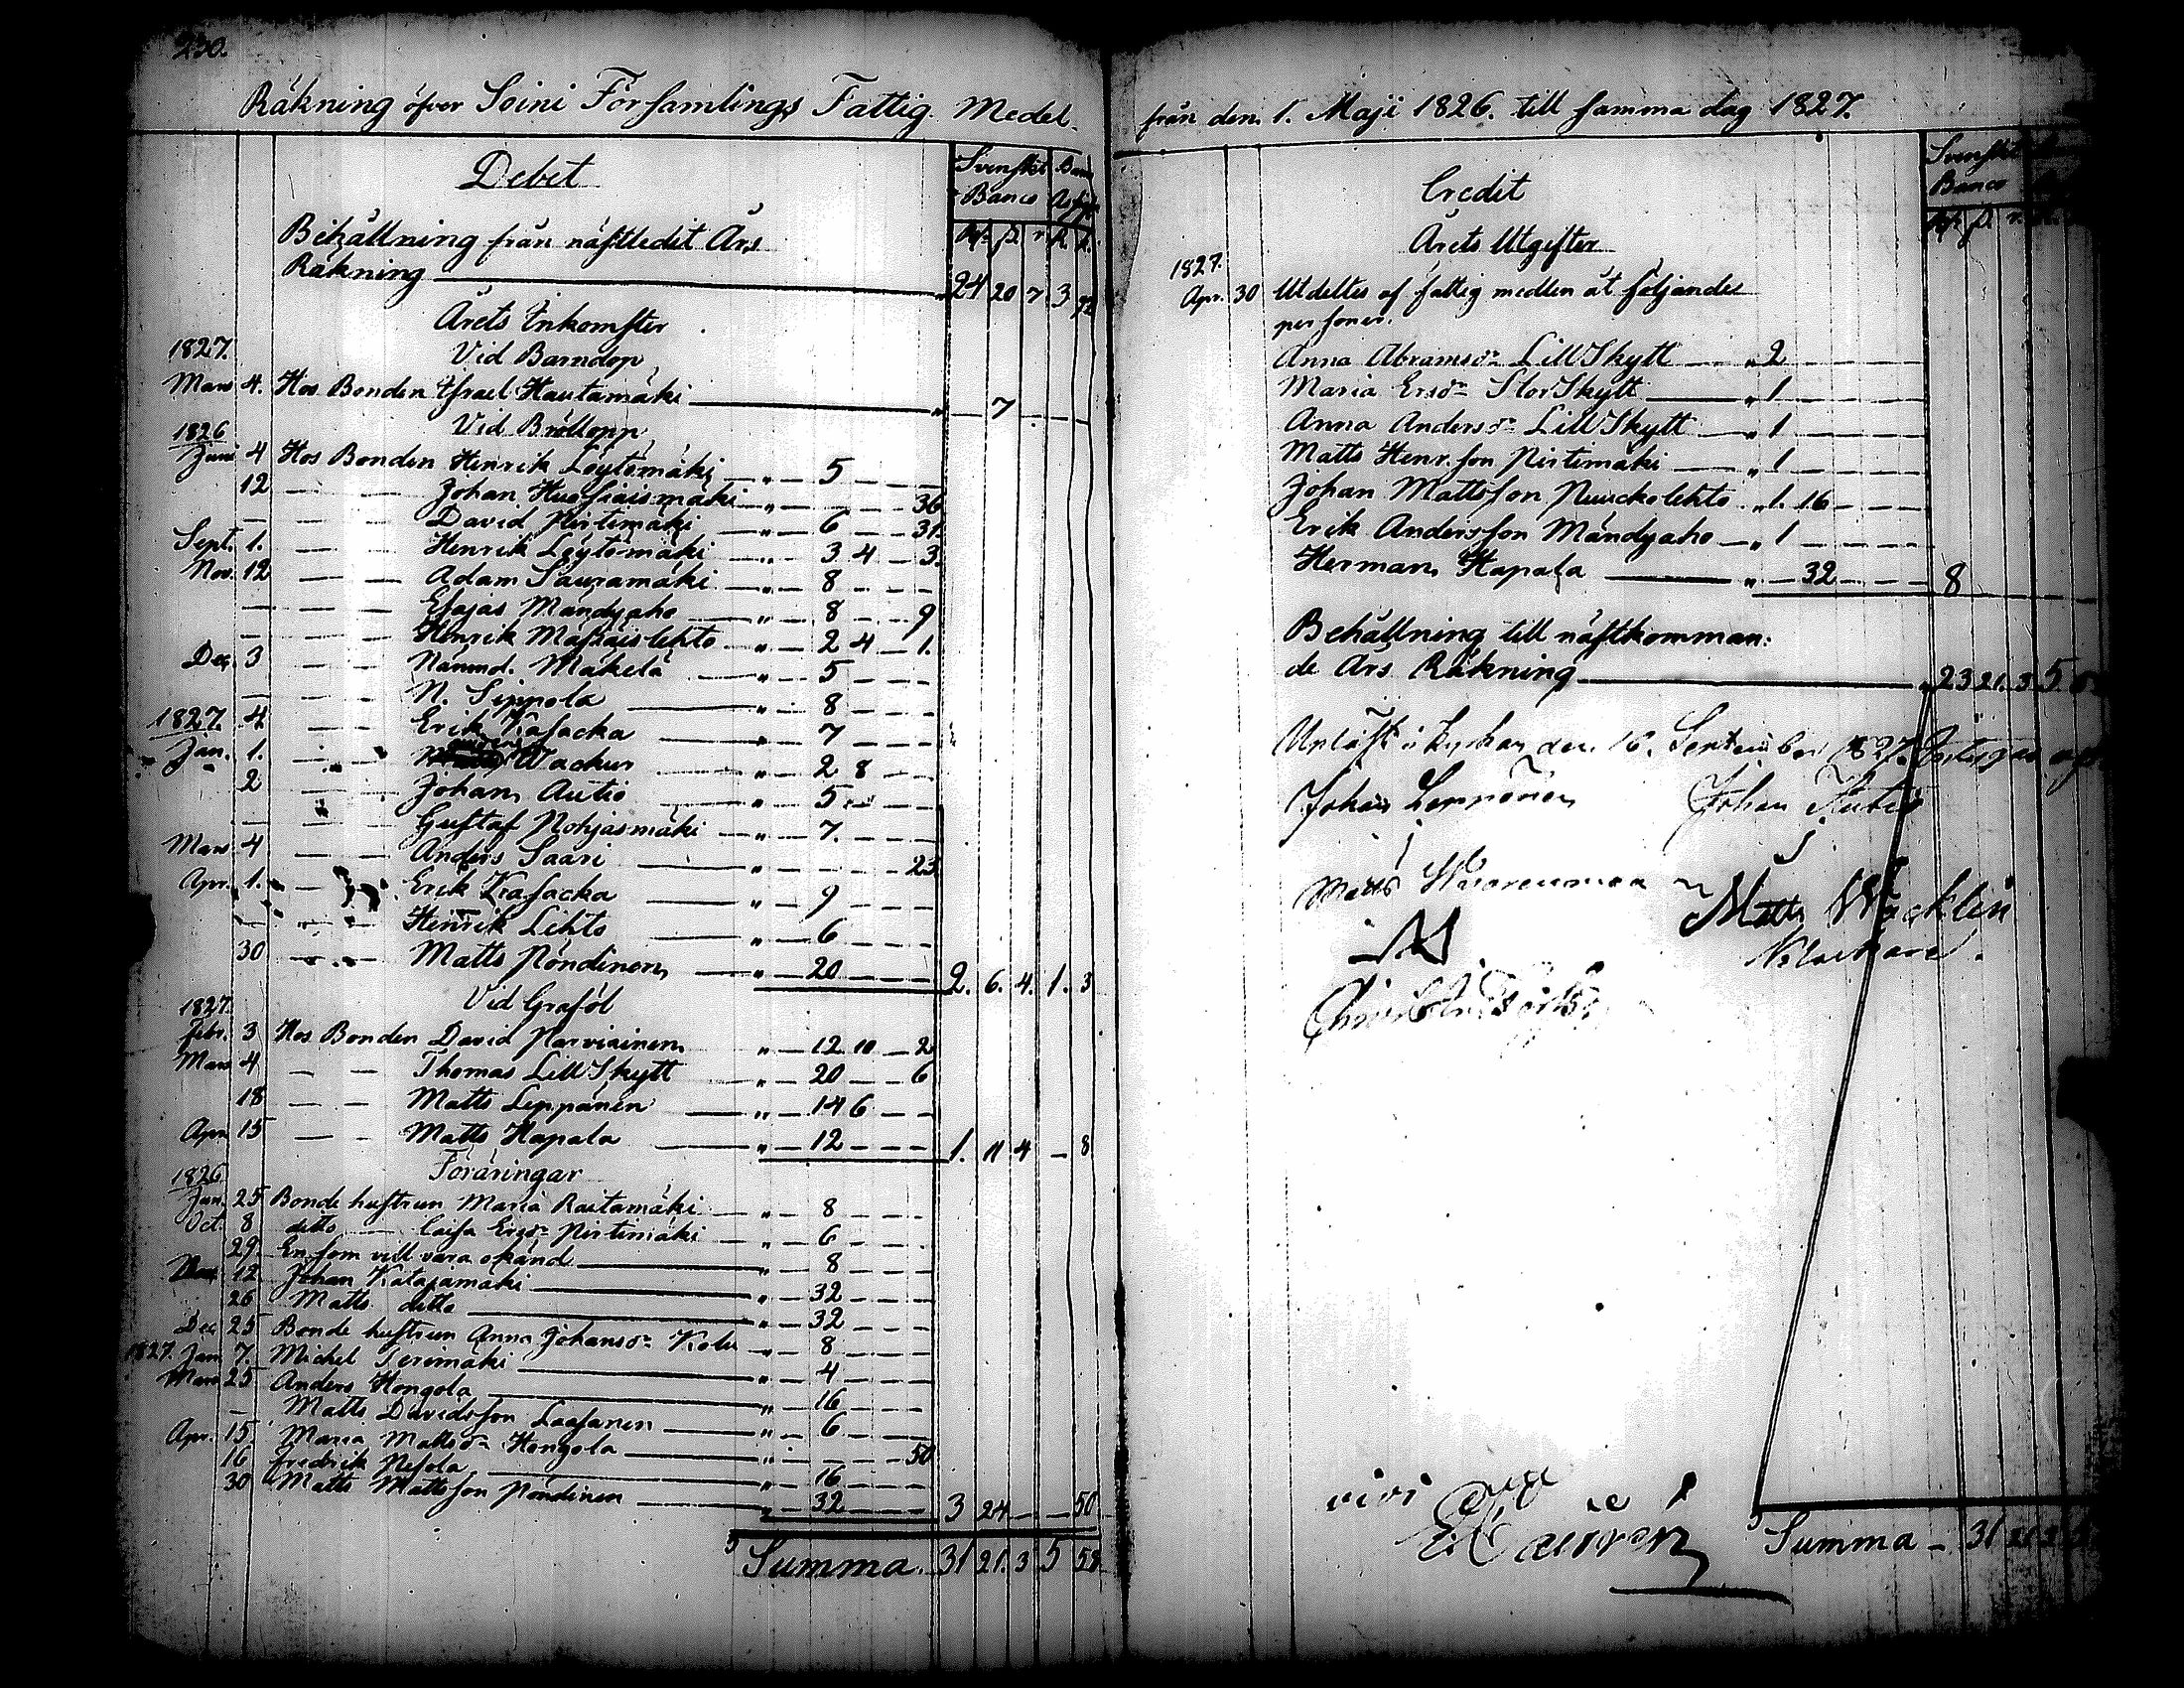 230.
Räkning öfver Soini Församlings Fattig Medel
Debet
Svenskt
Banco
Behållning från nästledit Års
Räkning 24 20 7 3
Årets Inkomster
1827. Vid Barndop
Mars 4. Hos Bonden Israel Hautamäki 7
1826 Vid Bröllopp
Juni 4 Hos Bonden Henrik Löytömäki " 5
12 Johan " 36
David Pirtimäki " 6 31.
Sept. 1. Henrik Löytömäki " 3 4 3.
Nov. 12 Adam " 8
Esajas Mändyaho " 8 9
Henrik " 2 4 1.
Dec. 3 Nämnd. Mäkelä " 5
N. Sippola " 8
1827 4 Erik Kasacka " 7
Jan. 1. Wackur " 2 8
2 Johan Autio " 5
Gustaf Pohjasmäki " 7.
Mars 4 Anders Saari " 23
Apr. 1. Erik Kasacka " 9
Henrik Lehto " 6
30 Matts Pöndinen " 20 2. 6. 4. 1. 3
1827. Vid Graföl
Febr. 3 Hos Bonden David Parviainen " 12 10 2
Mars 4 Thomas LillSkytt " 20 6
18 Matts Leppänen " 14 6
Apr. 15 Matts Hapala " 12 1. 11 4 8
1826 Föräringar
25 Bonde hustrun Maria Rautamäki " 8
Oct. 8 ditto Caisa Ersdr Pirtimäki " 6
29. En som vill vara okänd " 8
12 Johan Katajamäki " 32
26 Matts ditto " 32
Dec 25 Bonde hustrun Anna Johansdr Kolu " 8
1827. Jan 7. Michel " 4
Mars 25 Anders Hongola " 16
Matts Davidsson Laasanen " 6
Apr. 15 Maria Mattsdr Hongola " 50
16 Fredrik " 16
30 Matts Mattsson Pöndinen " 32 3 24 50
Summa. 31 21. 3 5 58
från den 1. Maji 1826. till samma dag 1827.
Credit
Svenskt
Banco
Årets Utgifter
1827.
Apr. 30 Utdeltes af fattig medlen åt följande
personer.
Anna Abramsdr LillSkytt " 2
Maria Ersdr StorSkytt " 1
Anna Andersdr LillSkytt " 1
Matts Henr.son Pirtimäki " 1
Johan Mattsson Puuckolehto " 1. 16
Erik Andersson Mändyaho " 1
Herman Hapala " 32 8
Behållning till nästkomman:
de Års Räkning 23 21. 3 5
Upläst i Kyrkan den 16. September 1827.
Johan Leppänen Johan
Matts Matts Wacklin
Summa 31